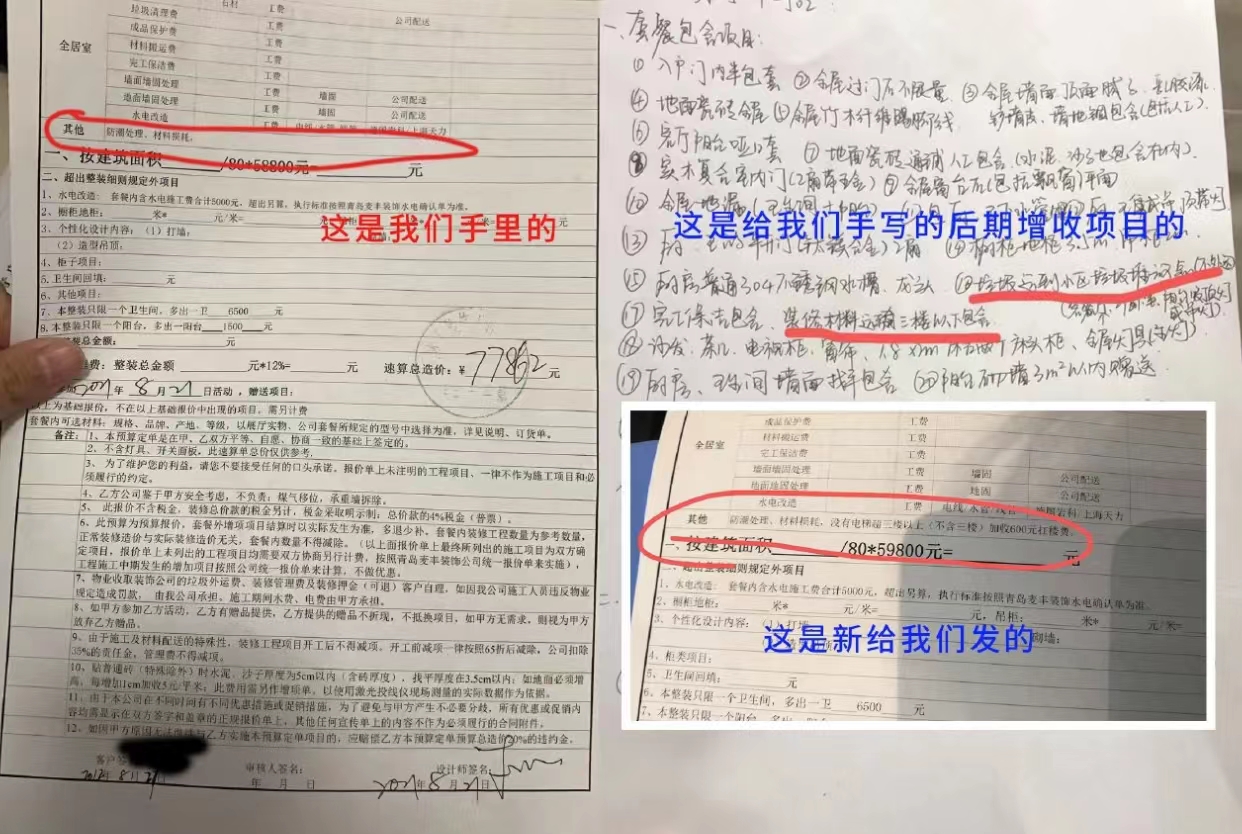 石材
工费
垃圾清理费
工费
公司配送
成品保护费
工费
全居室
材料搬运费
工费
完工保洁费
工费
墙面墙固处理
工费
墙固
公司配送
地面墙固处理
工费
地固
公司配送
水电改造
工费
其他
防潮处理、材料损耗,
一、按建筑面积______/80*58800元=______元
二、超出整装细则规定外项目
1、水电改造: 套餐内含水电施工费合计5000元, 超出另算, 执行标准按照青岛麦丰装饰水电确认单为准。
2、橱柜地柜: 米* 元/米=
3、个性化设计内容: (1)打墙:
(2)造型吊顶:
这是我们手里的
4、柜子项目:
5.卫生间回填: 元
6、其他项目:
7、本整装只限一个卫生间, 多出一卫 6500 元
8.本整装只限一个阳台, 多出一阳台 1500 元
整装总金额: 元
费: 整装总金额 元*12%= 元
速算总造价: ¥ 77862 元
2021年 8月21日活动, 赠送项目:
以上为基础报价, 不在以上基础报价中出现的项目, 需另计费
套餐内可选材料: 规格、品牌、产地、等级, 以展厅实物、公司套餐所规定的型号中选择为准, 详见说明、订货单。
备注: 1、本预算定单是在甲、乙双方平等、自愿、协商一致的基础上签定的。
2、不含灯具、开关面板, 此速算单总价仅供参考.
3、为了维护您的利益, 请您不要接受任何的口头承诺。报价单上未注明的工程项目、一律不作为施工项目和必
须履行的约定。
4、乙方公司鉴于甲方安全考虑, 不负责: 煤气移位, 承重墙拆除。
5、此报价不含税金, 装修总价款的税金另计, 税金采取明示制: 总价款的4%税金(普票)。
6、此预算为预算报价, 套餐外增项项目结算时以实际发生为准, 多退少补。套餐内装修工程数量为参考数量,
正常装修造价与实际装修造价无关, 套餐内数量不得减除。(以上面报价单上最终所列出的施工项目为双方确
定项目, 报价单上未列出的工程项目均需要双方协商另行计费, 按照青岛麦丰装饰公司统一报价单来实施),
工程施工中期发生的增加项目按照公司统一报价单来计算, 不做优惠。
7、物业收取装饰公司的垃圾外运费、装修管理费及装修押金(可退)客户自理, 如因我公司施工人员违反物业
规定造成罚款, 由我公司承担, 施工期间水费、电费由甲方承担。
8、如甲方参加乙方活动, 乙方有赠品提供, 乙方提供的赠品不折现, 不抵换项目, 如甲方无需求, 则视为甲方
放弃乙方赠品。
9、由于施工及材料配送的特殊性, 装修工程项目开工后不得减项。开工前减项一律按照65折后减除, 公司扣除
35%的责任金, 管理费不得减项。
10、贴普通砖(特殊除外)时水泥、沙子厚度为5cm以内(含砖厚度), 找平厚度在3.5cm以内; 如地面必须增
高, 每增加1cm加收5元/平米; 此费用需另作增项单, 以使用激光投线仪现场测量的实际数据作为依据。
11、由于本公司在不同时间有不同优惠措施或促销措施, 为了避免与甲方产生不必要分歧, 所有优惠或促销内
容均需显示在双方签字和盖章的正规报价单上, 其他任何宣传单上的内容不作为必须履行的合同附件。
12、如因甲方原因无法继续与乙方实施本预算定单项目的, 应赔偿乙方本预算定单预算总造价20%的违约金。
客户签
审核人签名:
设计师签名:
年 月 日
2021年8月21日
一、套餐包含项目:
① 入户门内半包套 ② 全屋过门石不限量 ③ 全屋墙面顶面腻子、乳胶漆
④ 地面瓷砖全屋 ⑤ 全屋竹木纤维踢脚线
⑥ 客厅阳台哑口套 ⑦ 地面瓷砖通铺人工包含(水泥、沙子也包含在内)
⑧ 实木复合室内门(2扇 ⑨ 全屋窗台石(包括飘窗)平面
这是给我们手写的后期增收项目的
⑮ 厨房普通304不锈钢水槽、龙头 ⑯ 垃圾运到小区垃圾堆放点(不外运)
⑰ 完工保洁包含、装修材料运输三楼以下包含
⑱ 沙发、茶几、电视柜、窗帘、1.8×2m 床 两个床头柜、全屋灯具
⑲ 厨房、卫生间墙面找平包含 ⑳ 阳台砌墙3m²以内赠送
成品保护费
工费
全居室
材料搬运费
工费
完工保洁费
工费
墙面墙固处理
工费
墙固
公司配送
地面墙固处理
工费
地固
公司配送
水电改造
工费
其他
防潮处理、材料损耗, 没有电梯超三楼以上(不含三楼)加收600元扛楼费。
一、按建筑面积______/80*59800元=______元
二、超出整装细则规定外项目
1、水电改造: 套餐内含水电施工费合计5000元, 超出另算, 执行标准按照青岛麦丰装饰水电确认单为准。
2、橱柜地柜: 米* 元/米= 元, 吊柜: 米* 元/米=
3、个性化设计内容: (1)打墙: 砌墙:
这是新给我们发的
4、柜类项目:
5、卫生间回填: 元
6、本整装只限一个卫生间, 多出一卫 6500 元
7、本整装只限一个阳台,